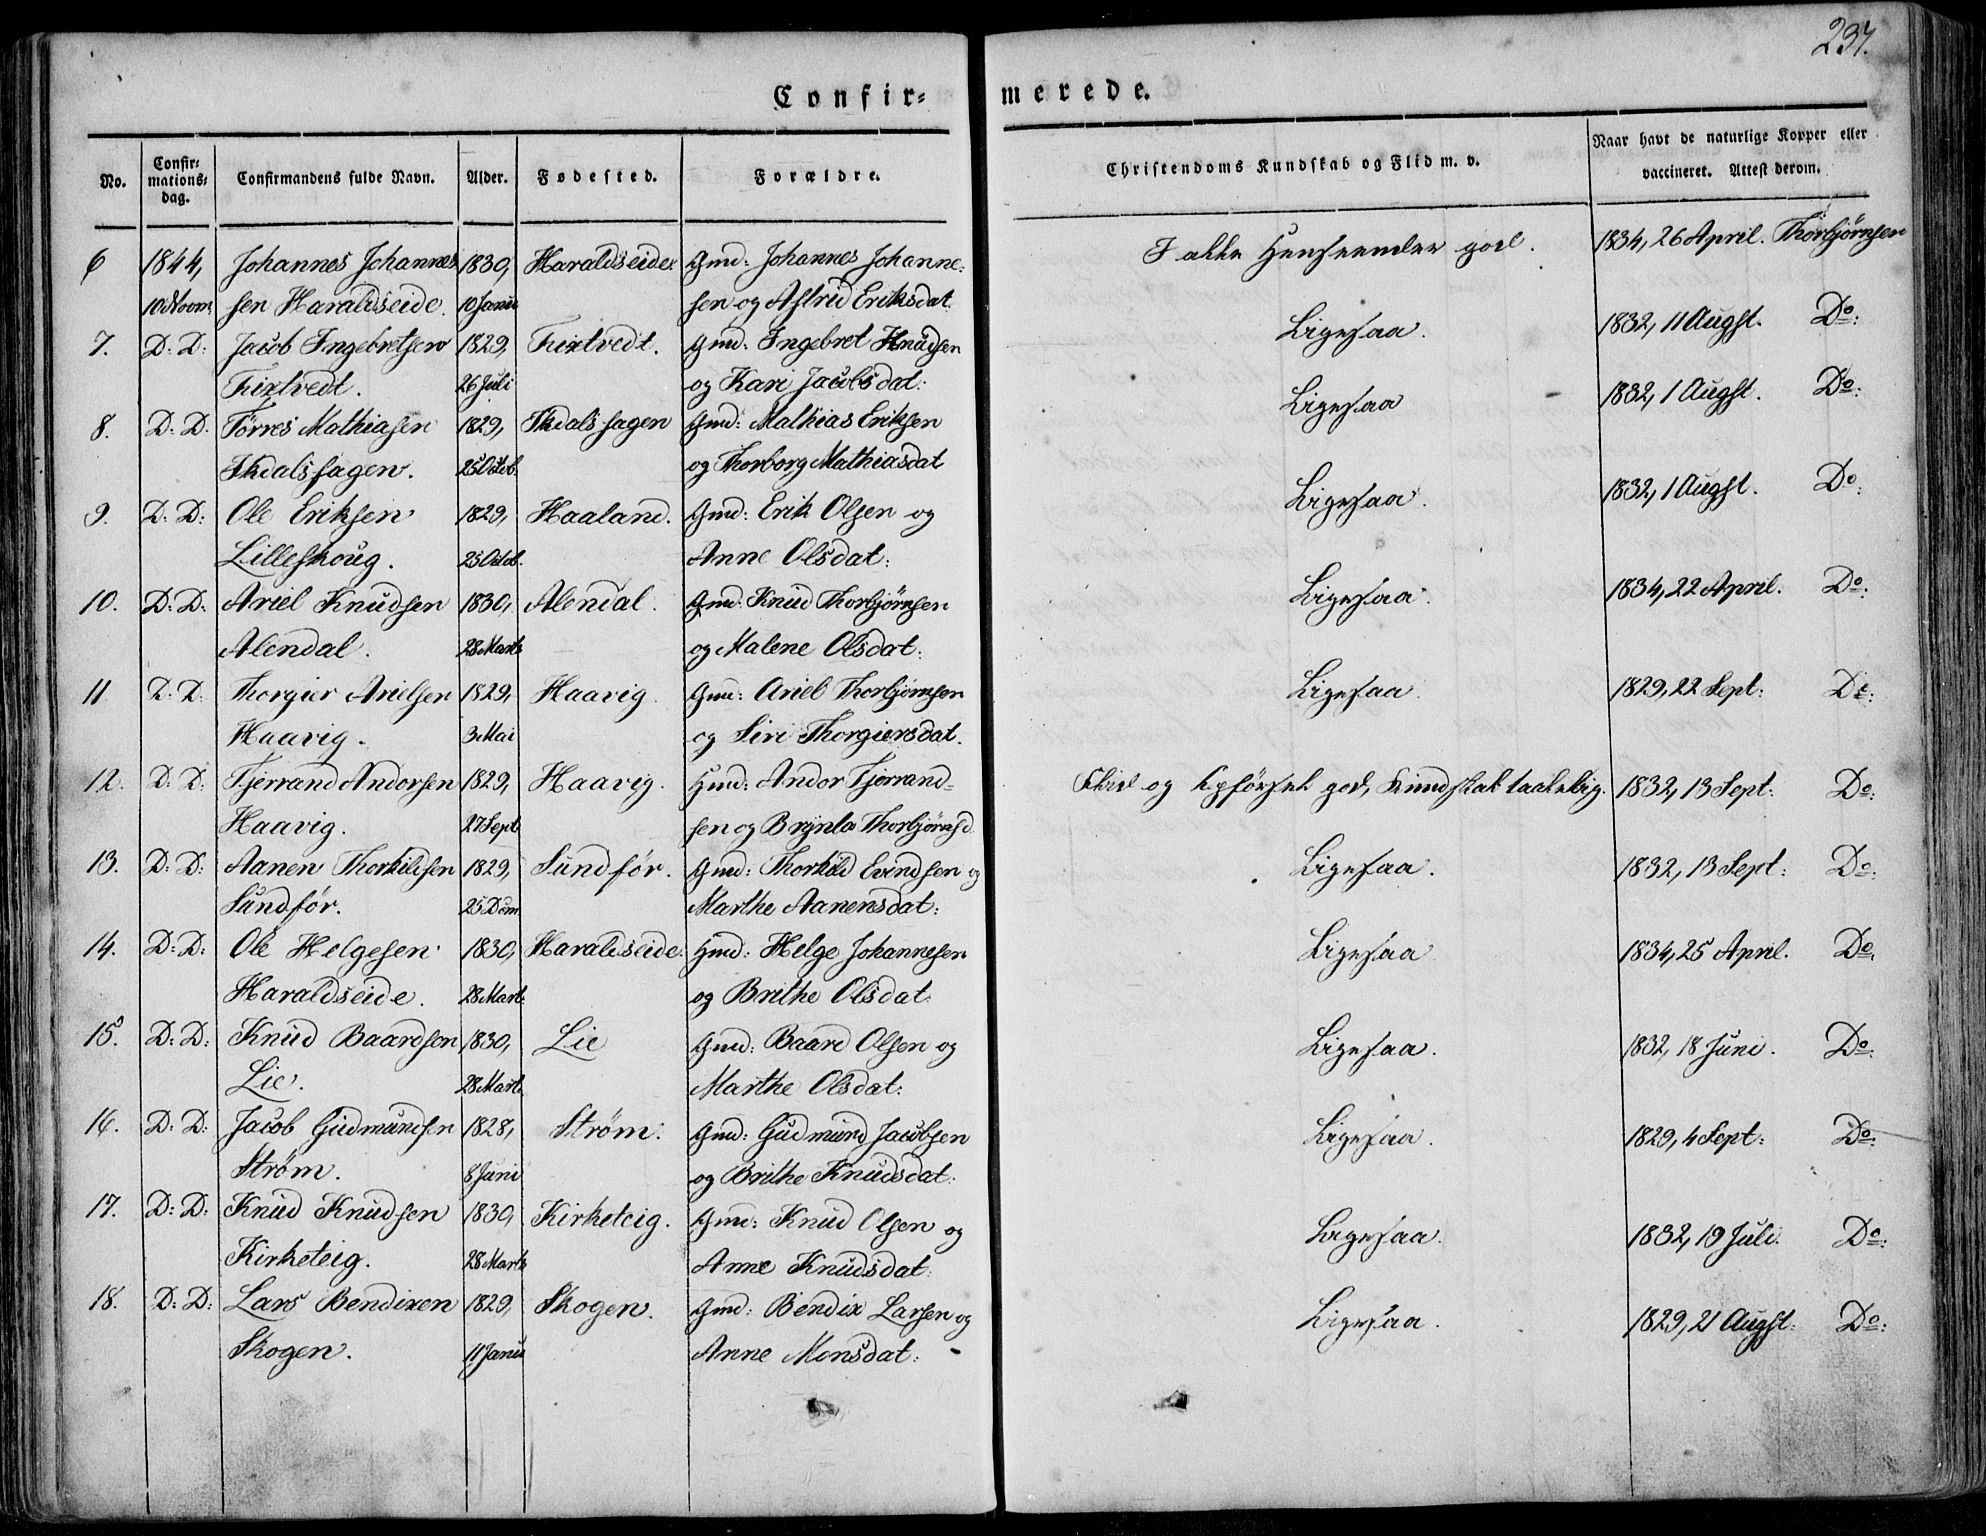 237.
Confir= merede.
No. Confir= mations= dag. Confirmandens fulde Navn. Alder. Fødested. Forældre. Christendoms Kundskab og Flid m. v. Naar havt de naturlige Kopper eller vaccineret. Attest derom.
6 1844, Johannes Johannes 1830, Haraldseide. Gmd: Johannes Johanne= I alle Henseender god. 1834, 26 April. Thorbjørnsen
10de Novm. sen Haraldseide. 10 Janu sen og Astrid Eriksdat.
7. D: D: Jacob Ingebretsen 1829, Tixtvedt. Gmd: Ingebret Knudsen Ligesaa. 1832, 11 Augst. Do:
Tixtvedt. 26 Juli og Kari Jacobsdat:
8. D: D. Törres Mathiasen 1829, Skdalshagen Gmd: Mathias Eriksen Ligesaa 1832, 1 Augst. Do:
Skdalshagen. 25 Octob. og Thorborg Mathiasdat
9. D: D: Ole Eriksen 1829, Haaland. Gmd: Erik Olsen og Ligesaa. 1832, 1 Augst. Do:
Lilleskoug. 25 Octob. Anne Olsdat:
10. D: D: Ariel Knudsen 1830, Alendal. Gmd: Knud Thorbjørnsen Ligesaa. 1834, 22 April. Do:
Alendal. 28 Marts og Malene Olsdat:
11 D: D: Thorgier Arielsen 1829, Haavig. Gmd: Ariel Thorbjørnsen Ligesaa. 1829, 22 Sept: Do:
Haavig. 3 Mai og Siri Thorgiersdat.
12. D: D: Tjerrand Andorsen 1829, Haavig. Gmd: Andor Tjerrand= Flid og Opførsel god, Kundskab taalelig. 1832, 13 Sept: Do:
Haavig. 27 Sept sen og Brynla Thorbjørnsd
13. D: D: Aanen Thorkildsen 1829, Sundför. Gmd: Thorkild Evindsen og Ligesaa. 1832, 13 Sept: Do:
Sundför. 25 Dcm. Marthe Aanensdat:
14. D: D: Ole Helgesen 1830, Haraldseide. Gmd: Helge Johannesen Ligesaa. 1834, 25 April. Do.
Haraldseide. 28 Mart. og Brithe Olsdat:
15. D: D: Knud Baardsen 1830, Lie Gmd: Baard Olsen og Ligesaa. 1832, 18 Juni. Do:
Lie. 28 Mart. Marthe Olsdat:
16. D: D: Jacob Gudmundsen 1828, Strøm. Gmd: Gudmund Jacobsen Ligesaa. 1829, 4 Sept: Do:
Strøm. 8 Juni og Brithe Knudsdat:
17. D: D: Knud Knudsen 1830, Kirketeig. Gmd: Knud Olsen og Ligesaa. 1832, 19 Juli. Do:
Kirketeig. 28 Marts Anne Knudsdat:
18. D: D: Lars Bendixen 1829, Skogen. Gmd: Bendix Larsen og Ligesaa. 1829, 21 Augst: Do:
Skogen. 11 Janu Anne Monsdat: